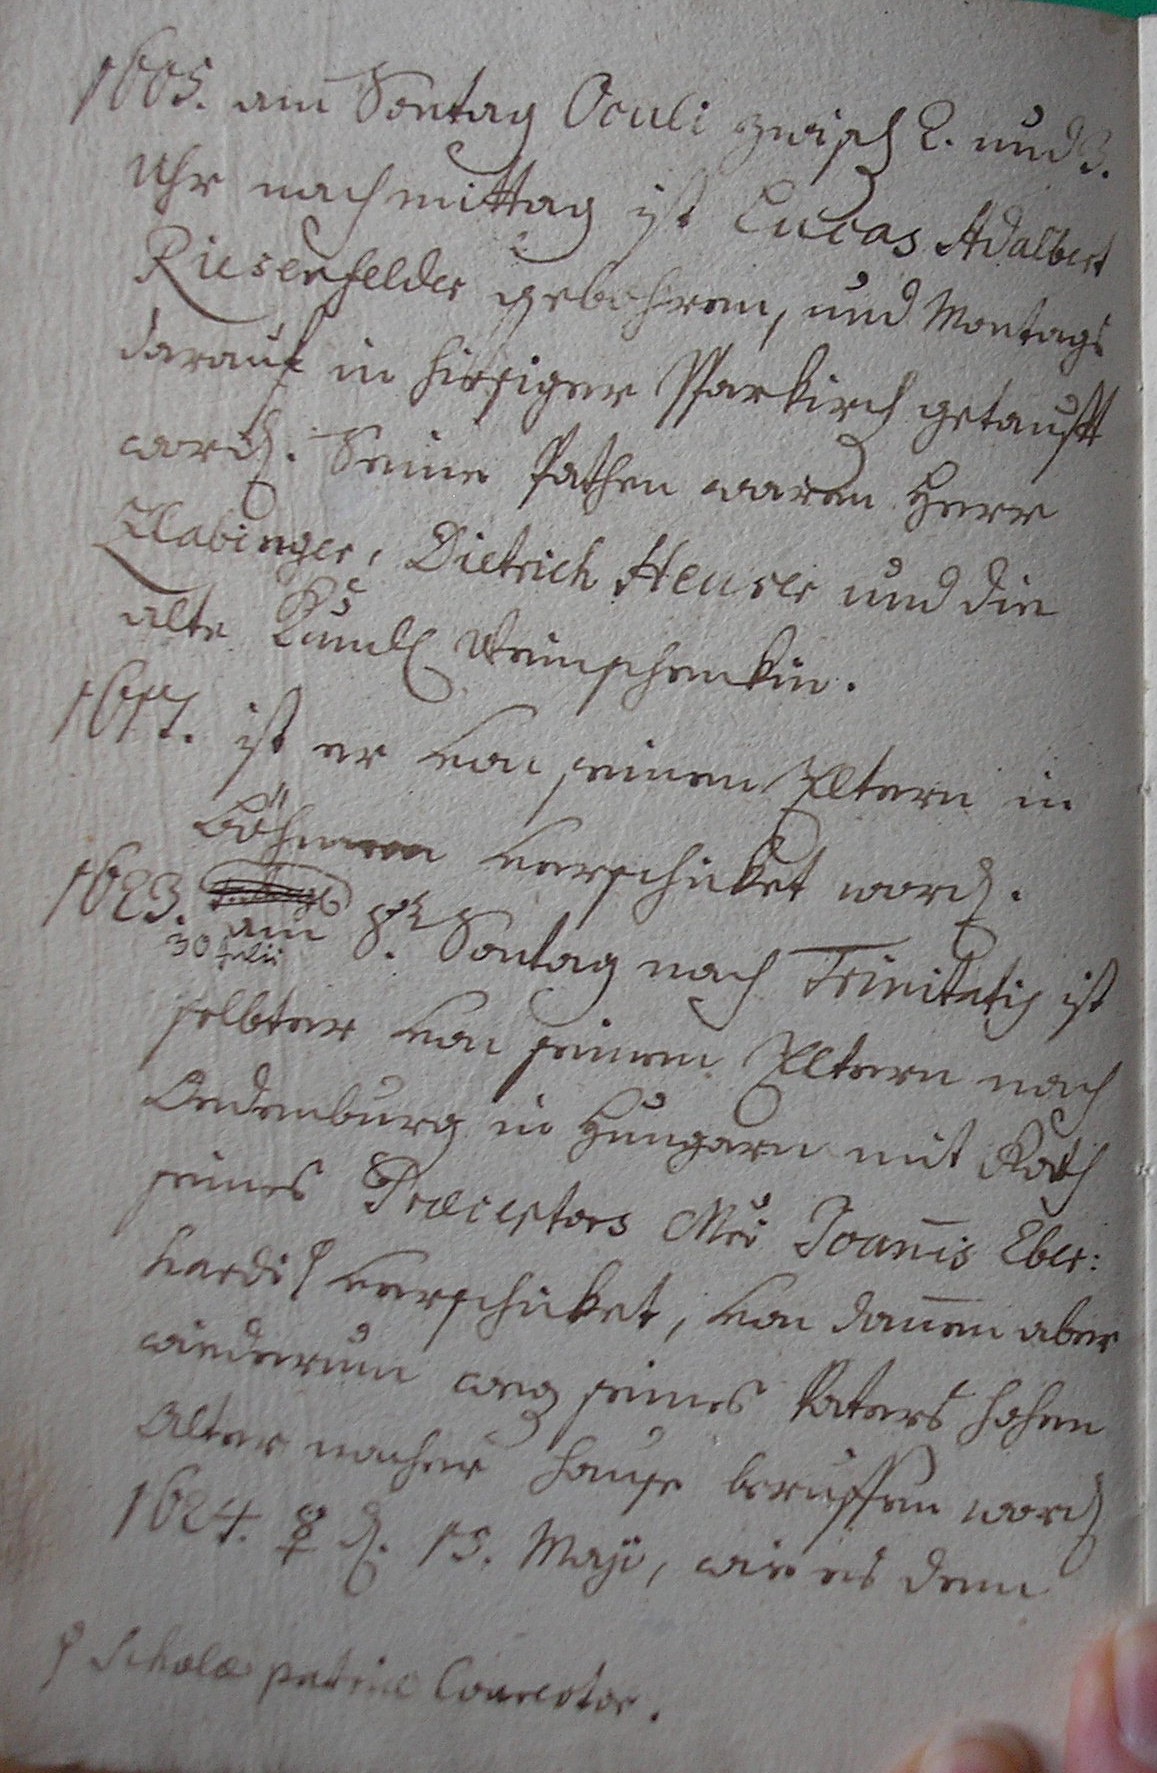 1605. am Sontag Oculi zwisch 2. und 3.
Uhr nachmittag ist Lucas Adalbert
Riesenfelder gebohren, und Montags
darauf in hiesiger Pfarkirch getaufft
word. Seine Pathen waren Herr
Dietrich Heuser und die
alte Weinschenkin.
1617. ist er von seinen Eltern in
Böhmen verschicket word.
1623. am 8. Sontag nach Trinitatis ist
30 Julii
selbter von seinen Eltern nach
Oedenburg in Hungarn mit Rath
seines Præceptors Joannis Eber:
hardi verschicket, von dannen aber
wiederum weg seines Vaters hohen
Alter nacher Hause beruffen word
1624. ☿ d. 15. Maji, wie es denn
Scholæ patriæ Conrector.